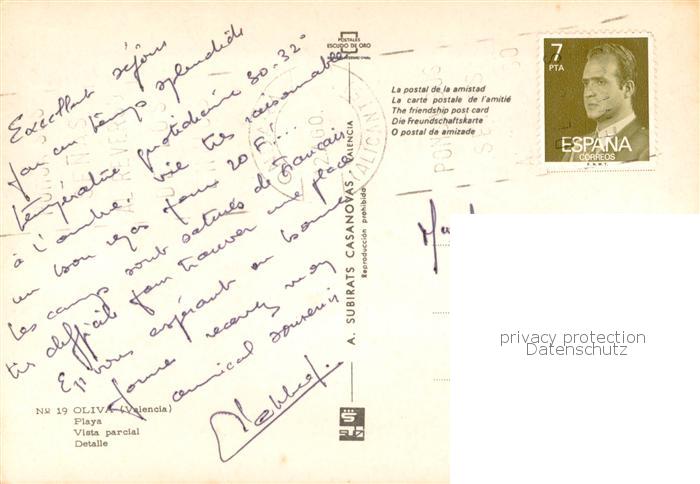 Excellent séjour
par un temps splendide
température quotidienne 30-32°
à l'ombre. vie très raisonnable
un bon repas pour 20 F!...
Les camps sont saturés de Français
très difficile pour trouver une place
En vous espérant en bonne
forme recevez mon
amical souvenir
Nº 19 OLIVA (Valencia)
Playa
Vista parcial
Detalle
POSTALES
ESCUDO DE ORO
A. SUBIRATS CASANOVAS. VALENCIA
Reproducción prohibida
ALICANTE
La postal de la amistad
La carte postale de l'amitié
The friendship post card
Die Freundschaftskarte
O postal da amizade
7
PTA
ESPAÑA
CORREOS
F.N.M.T.
privacy protection
Datenschutz